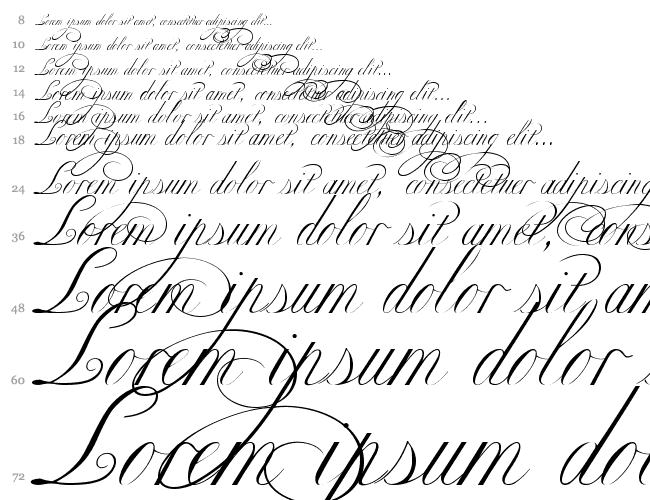 8 Lorem ipsum dolor sit amet, consectetuer adipiscing elit...
10 Lorem ipsum dolor sit amet, consectetuer adipiscing elit...
12 Lorem ipsum dolor sit amet, consectetuer adipiscing elit...
14 Lorem ipsum dolor sit amet, consectetuer adipiscing elit...
16 Lorem ipsum dolor sit amet, consectetuer adipiscing elit...
18 Lorem ipsum dolor sit amet, consectetuer adipiscing elit...
24 Lorem ipsum dolor sit amet, consectetuer adipiscing
36 Lorem ipsum dolor sit amet, cons
48 Lorem ipsum dolor sit am
60 Lorem ipsum dolor s
72 Lorem ipsum do